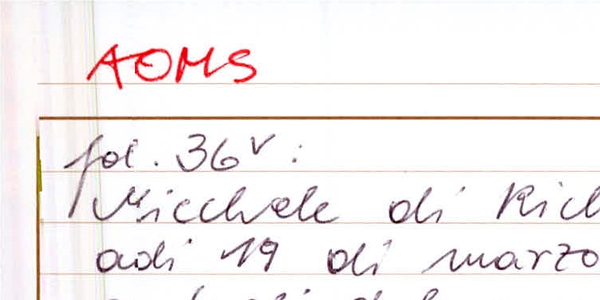 AOMS
fol. 36v:
Micchele di
adi 19 di marzo